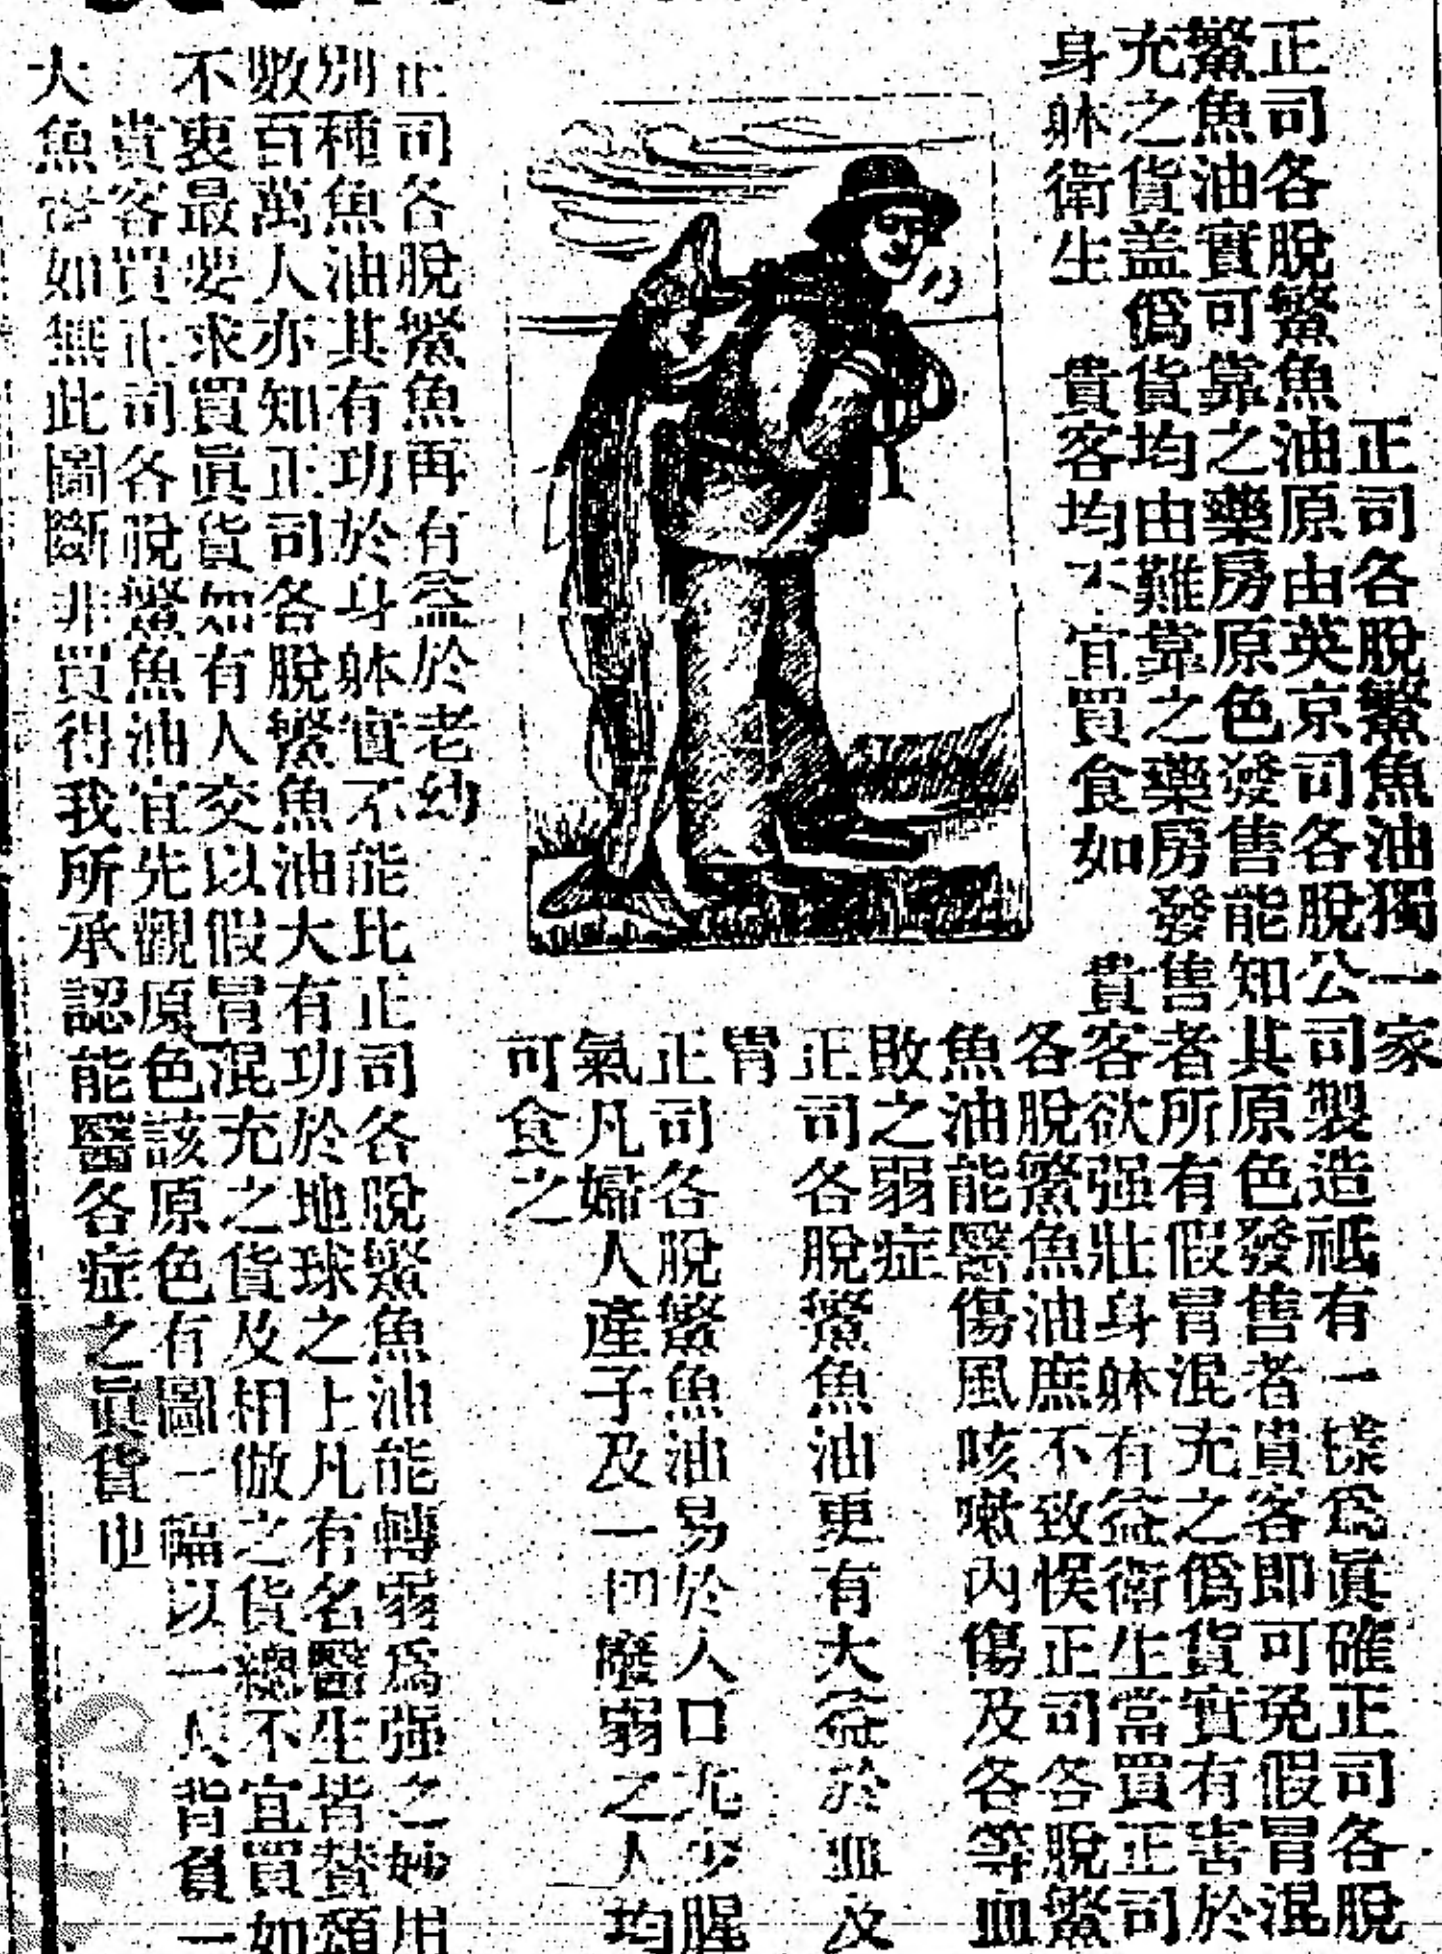 正司各脫鰵魚油獨一家
正司各脫鰵魚油原由英京司各脫公司製造祗有一樣爲眞確正司各脫
鰵魚油實可靠之藥房原色發售能知其原色發售者貴客即可免假冒混
充之貨盖僞貨均由難靠之藥房發售者所有假冒混充之僞貨實有害於
身躰衛生 貴客均不宜買食如 貴客欲强壯身躰有益衛生當買正司
各脫鰵魚油庶不致悞正司各脫鰵
魚油能醫傷風咳嗽內傷及各等血
敗之弱症
正司各脫鰵魚油更有大益於血及
胃
正司各脫鰵魚油易於人口尤少腥
氣凡婦人產子及一切癈弱之人均
可食之
正司各脫鰵魚再有益於老幼
別種魚油其有功於身躰實不能比正司各脫鰵魚油能轉弱爲强之妙用
數百萬人亦知正司各脫鰵魚油大有功於地球之上凡有名醫生皆賛頌
不衷最要求買眞貨如有人交以假冒混充之貨及相倣之貨總不宜買如
貴客買正司各脫鰵魚油宜先觀原色該原色有圖一幅以一人背負一
大魚 如無此圖斷非買得我所承認能醫各症之眞貨也